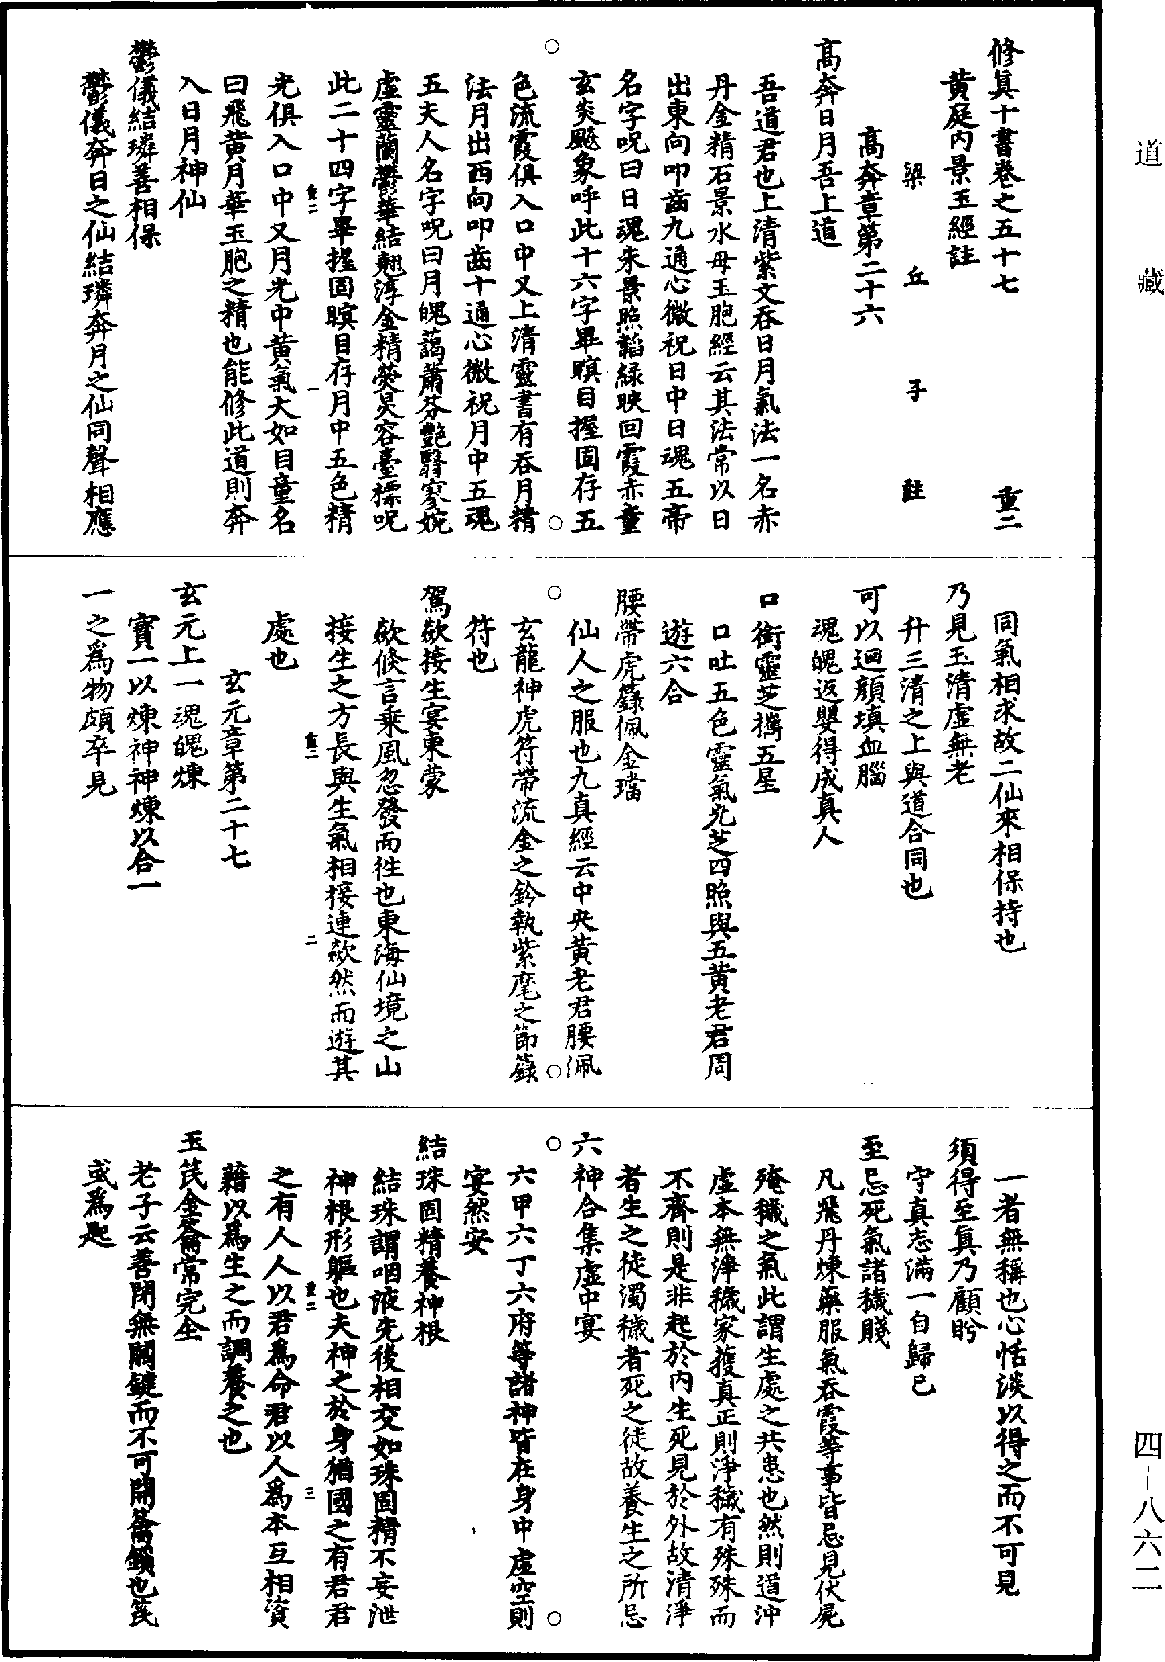 道藏
修真十書卷之五十七　重二
黃庭内景玉經註
梁丘子註
高奔章第二十六
高奔日月吾上道
吾道君也上清紫文吞日月氣法一名赤
丹金精石景水母玉胞經云其法常以日
出東向叩齒九通心微祝日中日魂五帝
名字呪曰日魂朱景照韜綠映回霞赤童
玄炎飈象呼此十六字畢瞑目握固存五
色流霞俱入口中又上清靈書有吞月精
法月出西向叩齒十通心微祝月中五魂
五夫人名字呪曰月魄薆蕭芬艷翳寥婉
虛靈蘭鬱華結翹淳金精熒炅容臺標呪
此二十四字畢握固瞑目存月中五色精
光俱入口中又月光中黃氣大如目童名
曰飛黃月華玉胞之精也能修此道則奔
入日月神仙
鬱儀結璘善相保
鬱儀奔日之仙結璘奔月之仙同聲相應
同氣相求故二仙來相保持也
乃見玉清虛無老
升三清之上與道合同也
可以迴顔填血腦
魂魄返嬰得成真人
口銜靈芝攜五星
口吐五色靈氣光芝四照與五黃老君周
遊六合
腰帶虎籙佩金璫
仙人之服也九真經云中央黃老君腰佩
玄龍神虎符帶流金之鈴執紫麾之節籙
符也
駕歘接生宴東蒙
歘倏言乗風忽發而徃也東海仙境之山
接生之方長與生氣相接連歘然而遊其
處也
玄元章第二十七
玄元上一魂魄煉
寳一以煉神神煉以合一
一之爲物頗卒見
一者無稱也心恬淡以得之而不可見
須得至真乃顧眄
守真志滿一自歸己
至忌死氣諸穢賤
凡飛丹煉藥服氣吞霞等事皆忌見伏屍
殗穢之氣此謂生處之共患也然則道沖
虛本無淨穢家獲真正則淨穢有殊殊而
不齊則是非起於内生死見於外故清淨
者生之徒濁穢者死之徒故養生之所忌
六神合集虛中宴
六甲六丁六府等諸神皆在身中虛空則
宴然安
結珠固精養神根
結珠謂咽液先後相交如珠固精不妄泄
神根形軀也夫神之於身猶國之有君君
之有人人以君爲命君以人爲本互相資
藉以爲生之而調養之也
玉笢金籥常完全
老子云善閉無關鍵而不可開籥鎖也笢
或爲匙
重二　一
重二　二
重二　三
四—八六二